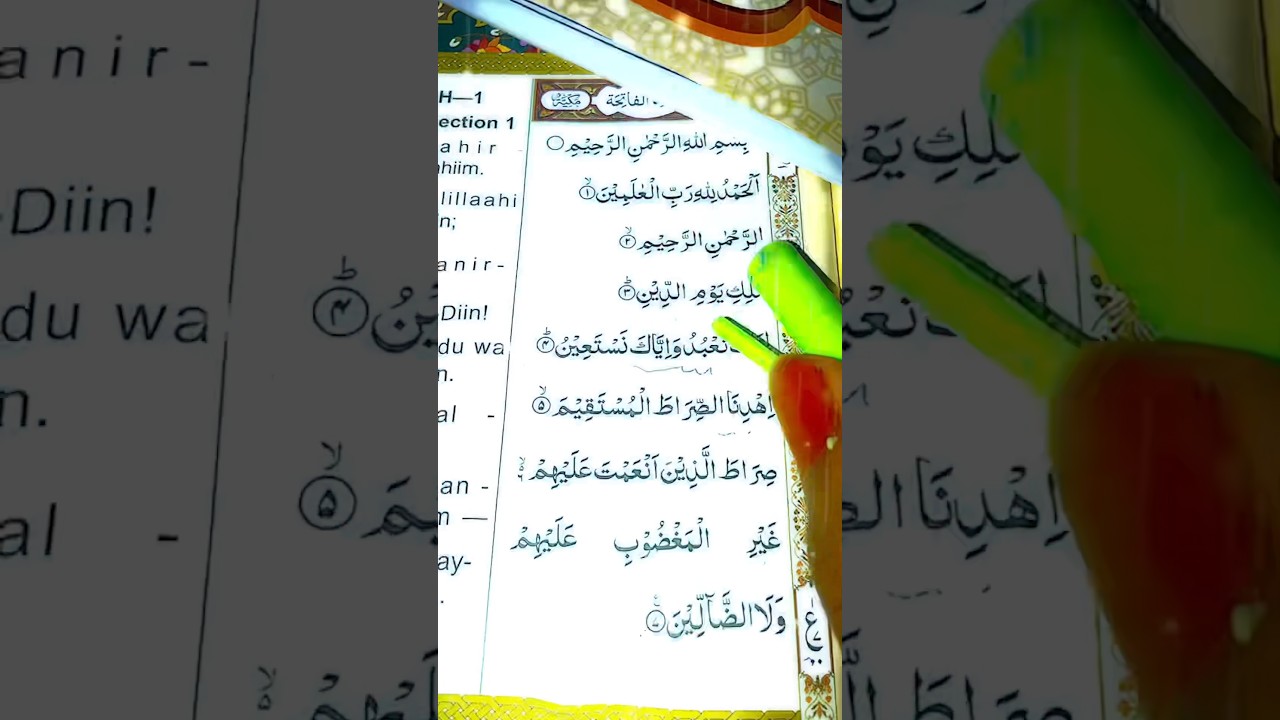 H—1
ection 1
ahir
hiim.
lillaahi
n;
anir-
Diin!
du wa
n.
al -
an -
m —
ay-
.
الفاتحة
مكية
بِسْمِ اللهِ الرَّحْمٰنِ الرَّحِيْمِ
اَلْحَمْدُ لِلّٰهِ رَبِّ الْعٰلَمِيْنَ ۙ﴿۱﴾
الرَّحْمٰنِ الرَّحِيْمِ ۙ﴿۲﴾
لِكِ يَوْمِ الدِّيْنِ ؕ﴿۳﴾
نَعْبُدُ وَاِيَّاكَ نَسْتَعِيْنُ ؕ﴿۴﴾
اِهْدِنَا الصِّرَاطَ الْمُسْتَقِيْمَ ۙ﴿۵﴾
صِرَاطَ الَّذِيْنَ اَنْعَمْتَ عَلَيْهِمْ
غَيْرِ الْمَغْضُوْبِ عَلَيْهِمْ
وَلَا الضَّآلِّيْنَ ﴿۷﴾